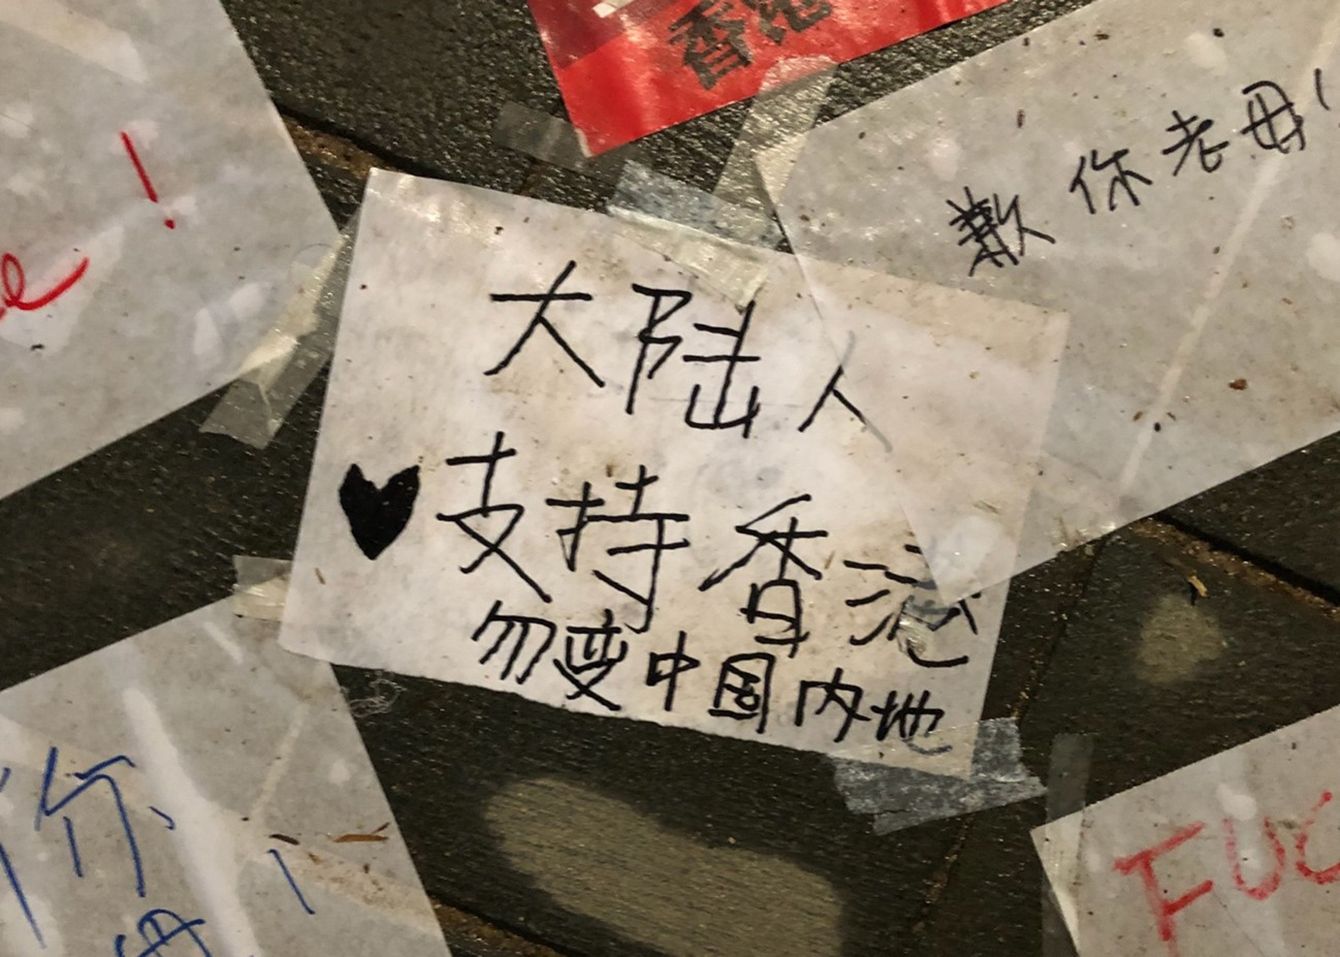 香港
歉你老毋!
!
大陆人
♥支持香港
勿变中国内地
你
!
FUC